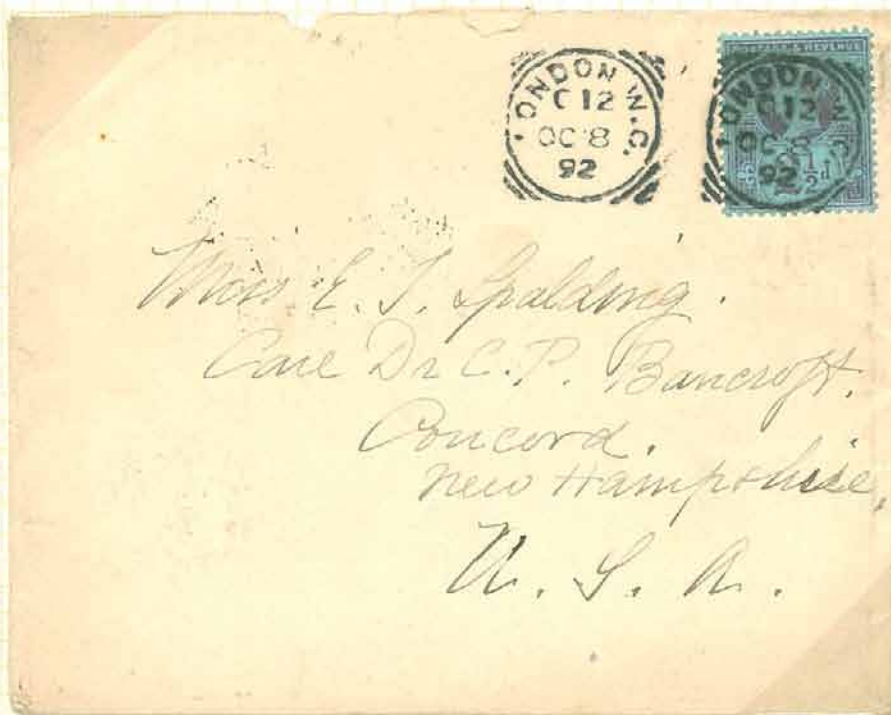 LONDON W.C.
C 12
OC 8
92
POSTAGE & REVENUE
LONDON W.C.
C 12
OC 8
92
2½d
Miss E. S. Spalding.
Care Dr C. P. Bancroft.
Concord.
New Hampshire,
U. S. A.